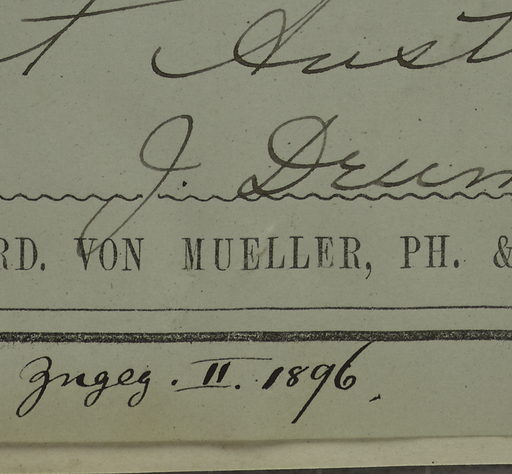 t Aust
J. Drum
RD. VON MUELLER, PH. &
Zugeg. II. 1896.